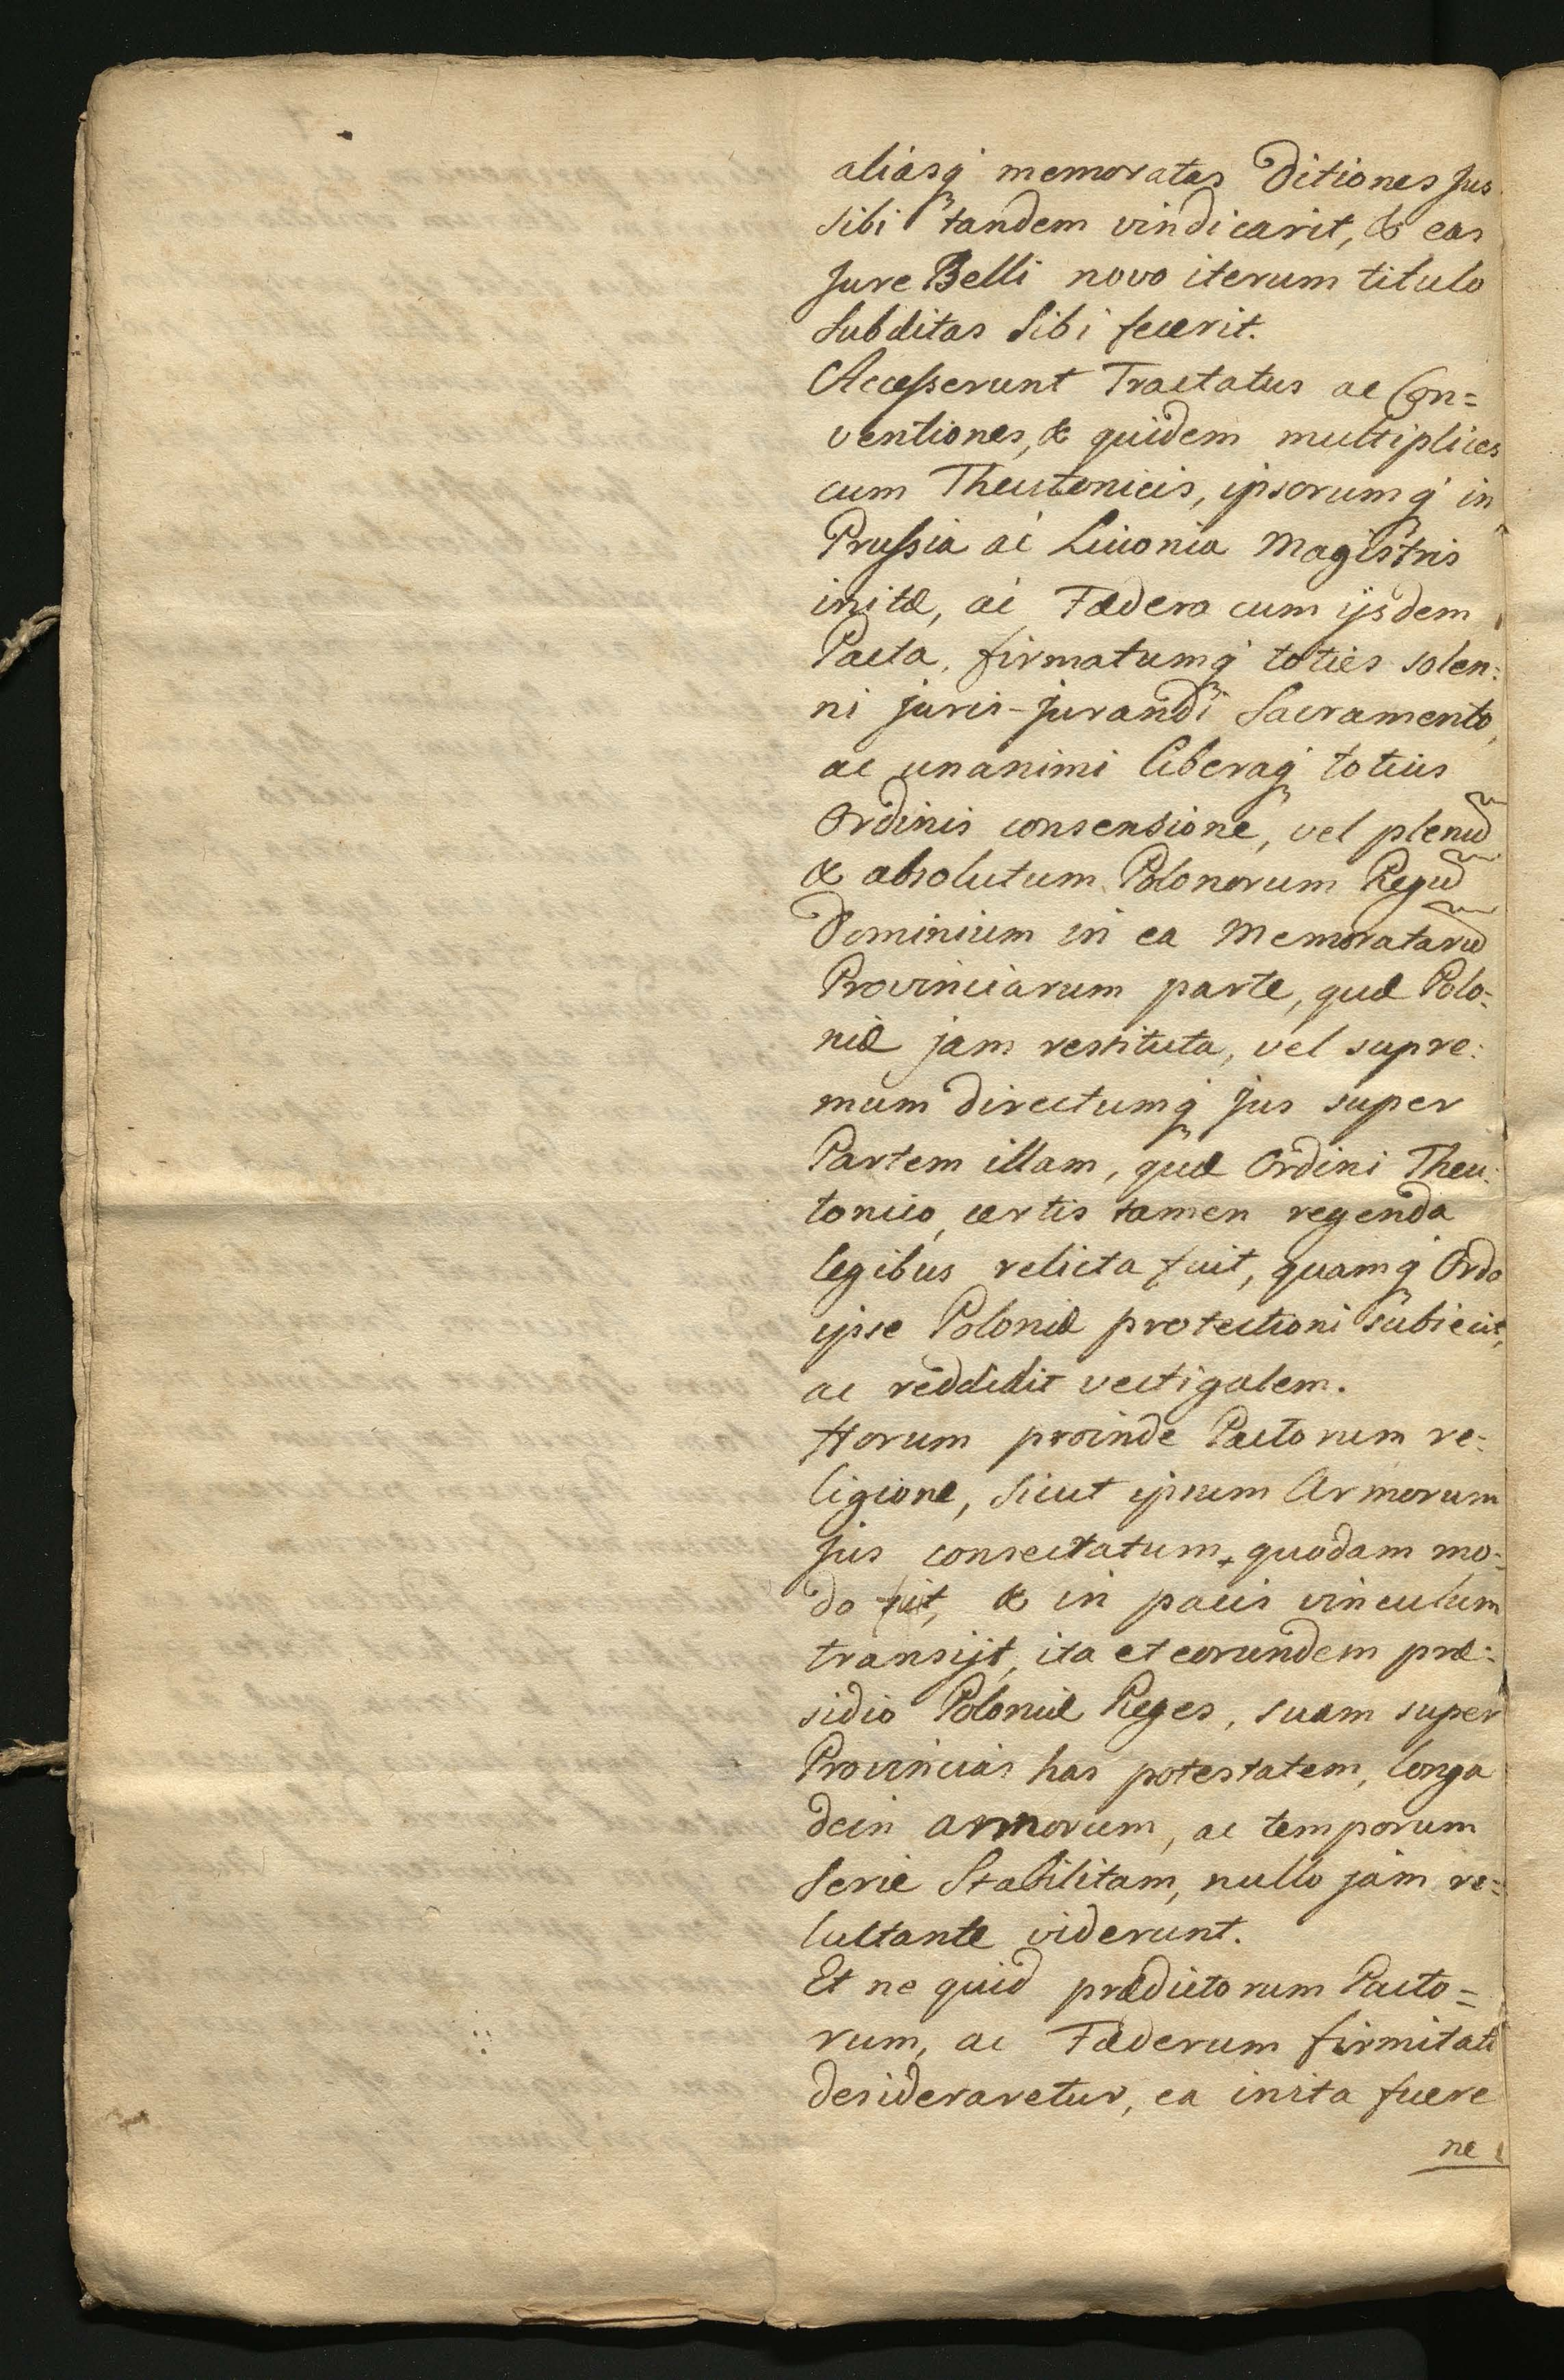 aliasq́ memoratas Ditiones Jus
sibi tandem vindicarit, & eas
Jure Belli novo iterum titulo
subditas sibi fecerit.
Accesserunt Tractatus ac Con=
ventiones, & quidem multiplices
cum Theutonicis, ipsorumq́ in
Prussia ac Livonia Magistris
initæ, ac Fædera cum ijsdem
Pacta, firmatumq́ toties solen:
ni juris-jurandi Sacramento,
ac unanimi liberaq́ totius
Ordinis consensione, vel plenu͂
& absolutum Polonorum Regu͂
Dominium in ea Memorataru͂
Provinciarum parte, quæ Polo:
niæ jam restituta, vel supre:
mum directumq́ jus super
Partem illam, quæ Ordini Theu:
tonico, certis tamen regenda
legibus relicta fuit, quamq́ Ordo
ipse Poloniæ protectioni subiecit,
ac reddidit vectigalem.
Horum proinde Pactorum re:
ligione, sicut ipsum Armorum
jus consecratum quodam mo:
do fuit, & in pacis vinculum
transijt, ita et eorundem præ:
sidio Poloniæ Reges, suam super
Provincias has potestatem, longa
dein armorum, ac temporum
serie stabilitam, nullo jam re:
luctante viderunt.
Et ne quid prædictorum Pacto=
rum, ac Fæderum firmitati
desideraretur, ea inita fuere
ne